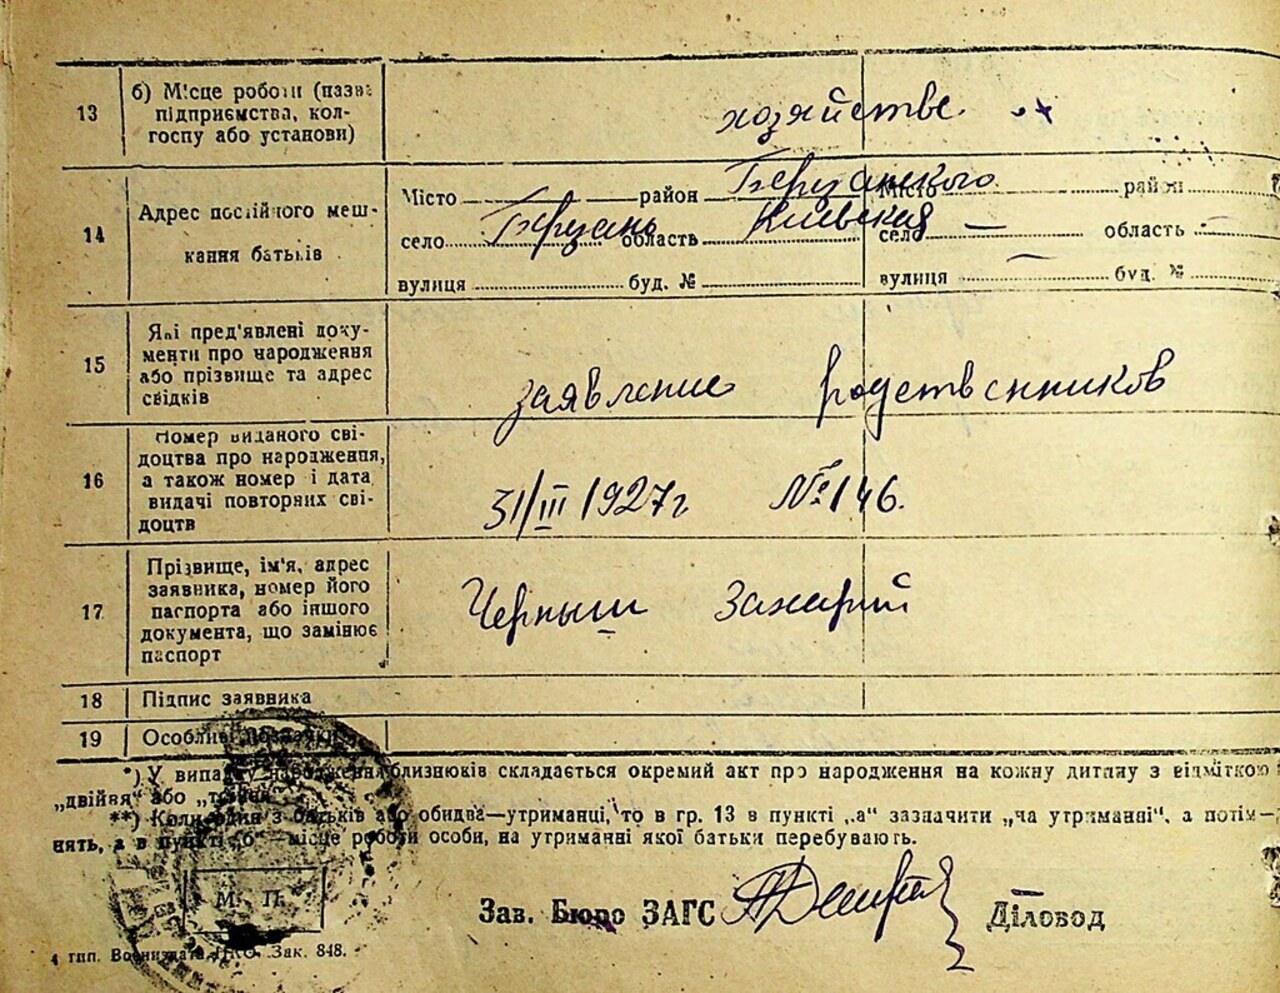 13 б) Місце роботи (назва
підприємства, кол-
госпу або установи)
хозяйстве.
14 Адрес постійного меш-
кання батьків
Місто район Березанского Місто район
село Березань область Киевская село — область —
вулиця буд. № вулиця — буд. №
15 Які пред'явлені доку-
менти про народження
або прізвище та адрес
свідків
заявление родственников
16 Номер виданого сві-
доцтва про народження,
а також номер і дата
видачі повторних сві-
доцтв
31/III 1927г №146.
17 Прізвище, ім'я, адрес
заявника, номер його
паспорта або іншого
документа, що замінює
паспорт
Черныш Захарий
18 Підпис заявника
19 Особливі
*) У випадку народження близнюків складається окремий акт про народження на кожну дитину з відміткою
„двійня“ або „трійня“
**) Коли один з батьків або обидва—утриманці, то в гр. 13 в пункті „а“ зазначити „на утриманні“, а потім—
нять, а в пункті „б“—місце роботи особи, на утриманні якої батьки перебувають.
М. П.
Зав. Бюро ЗАГС Діловод
4 тип. Воениздата НКО. Зак. 848.